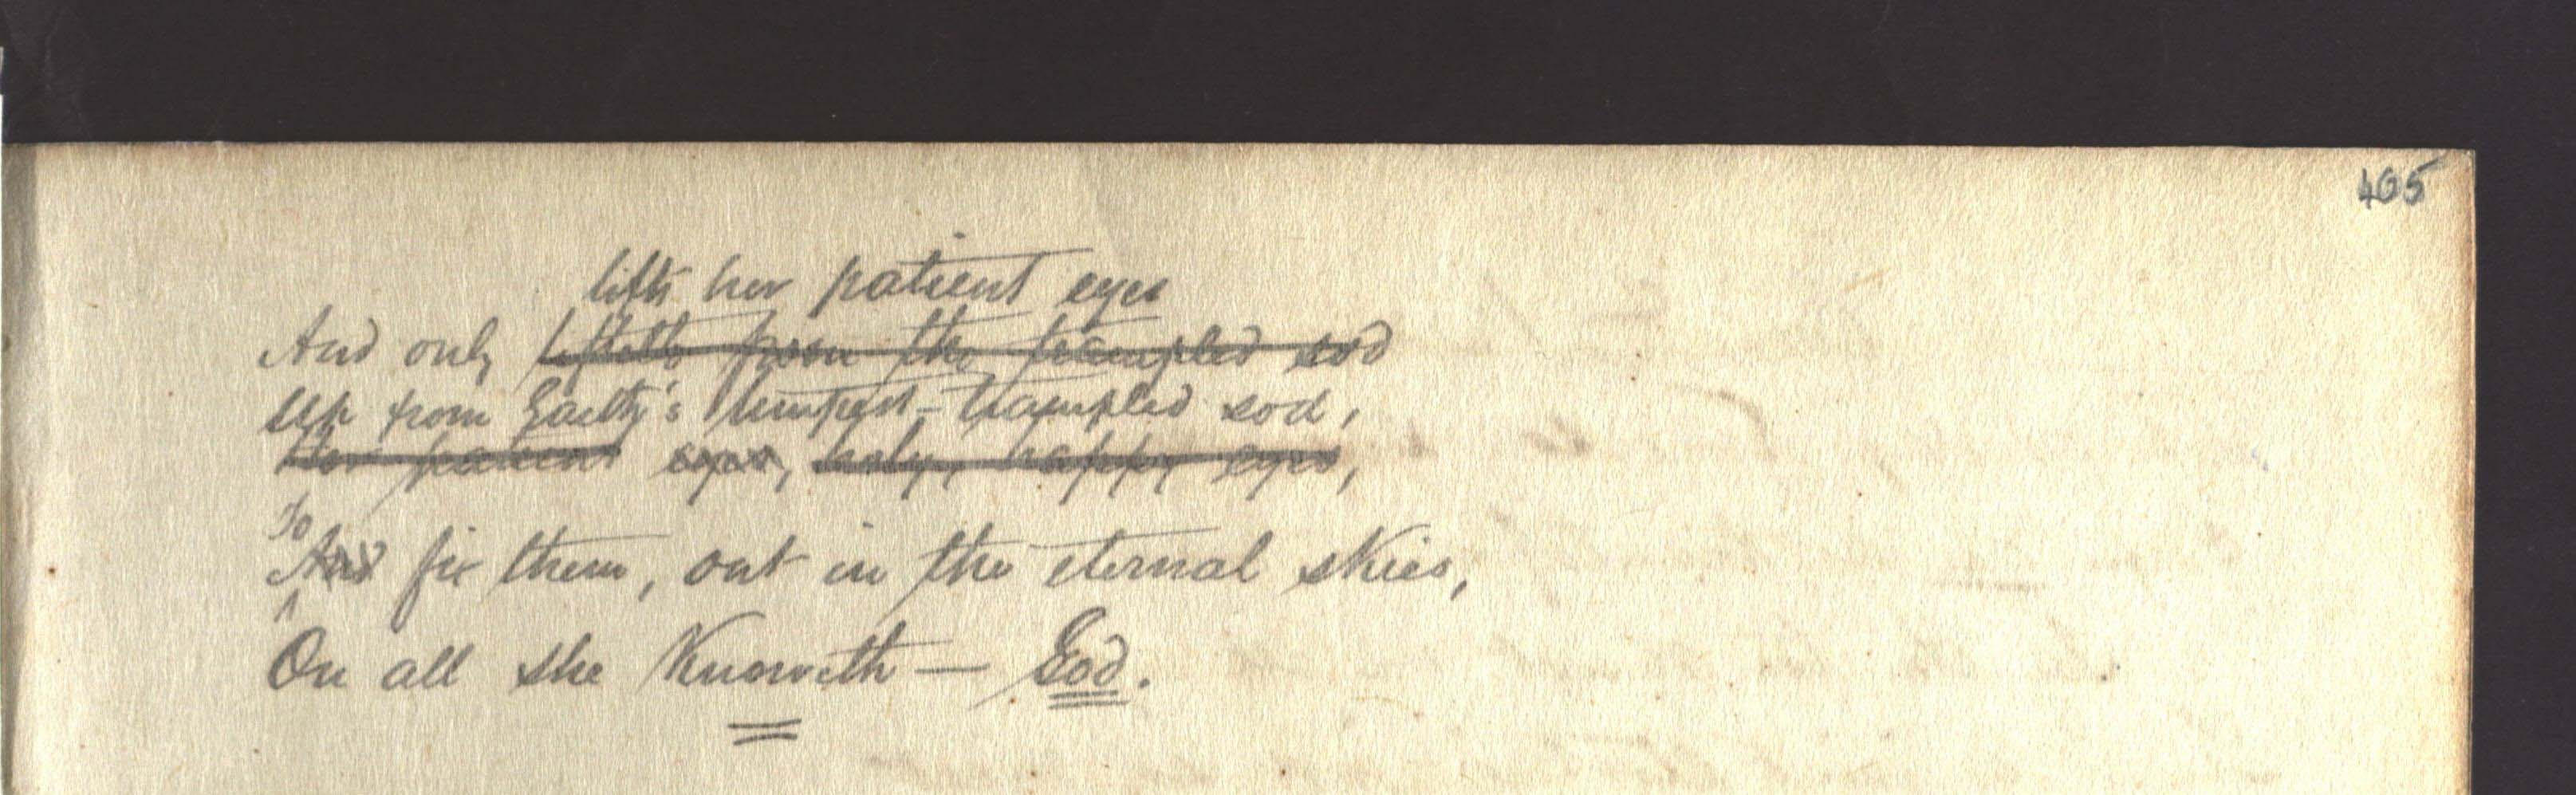 405
lifts her patient eyes
And only lifteth from the trampled sod
Up from Earth's tempest-trampled sod,
Her patient eyes, holy, happy eyes,
To
And fix them, out in the eternal skies,
On all she Knoweth — God.